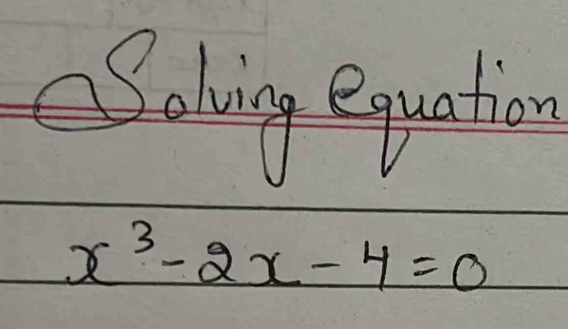 Solving equation
x³-2x-4=0